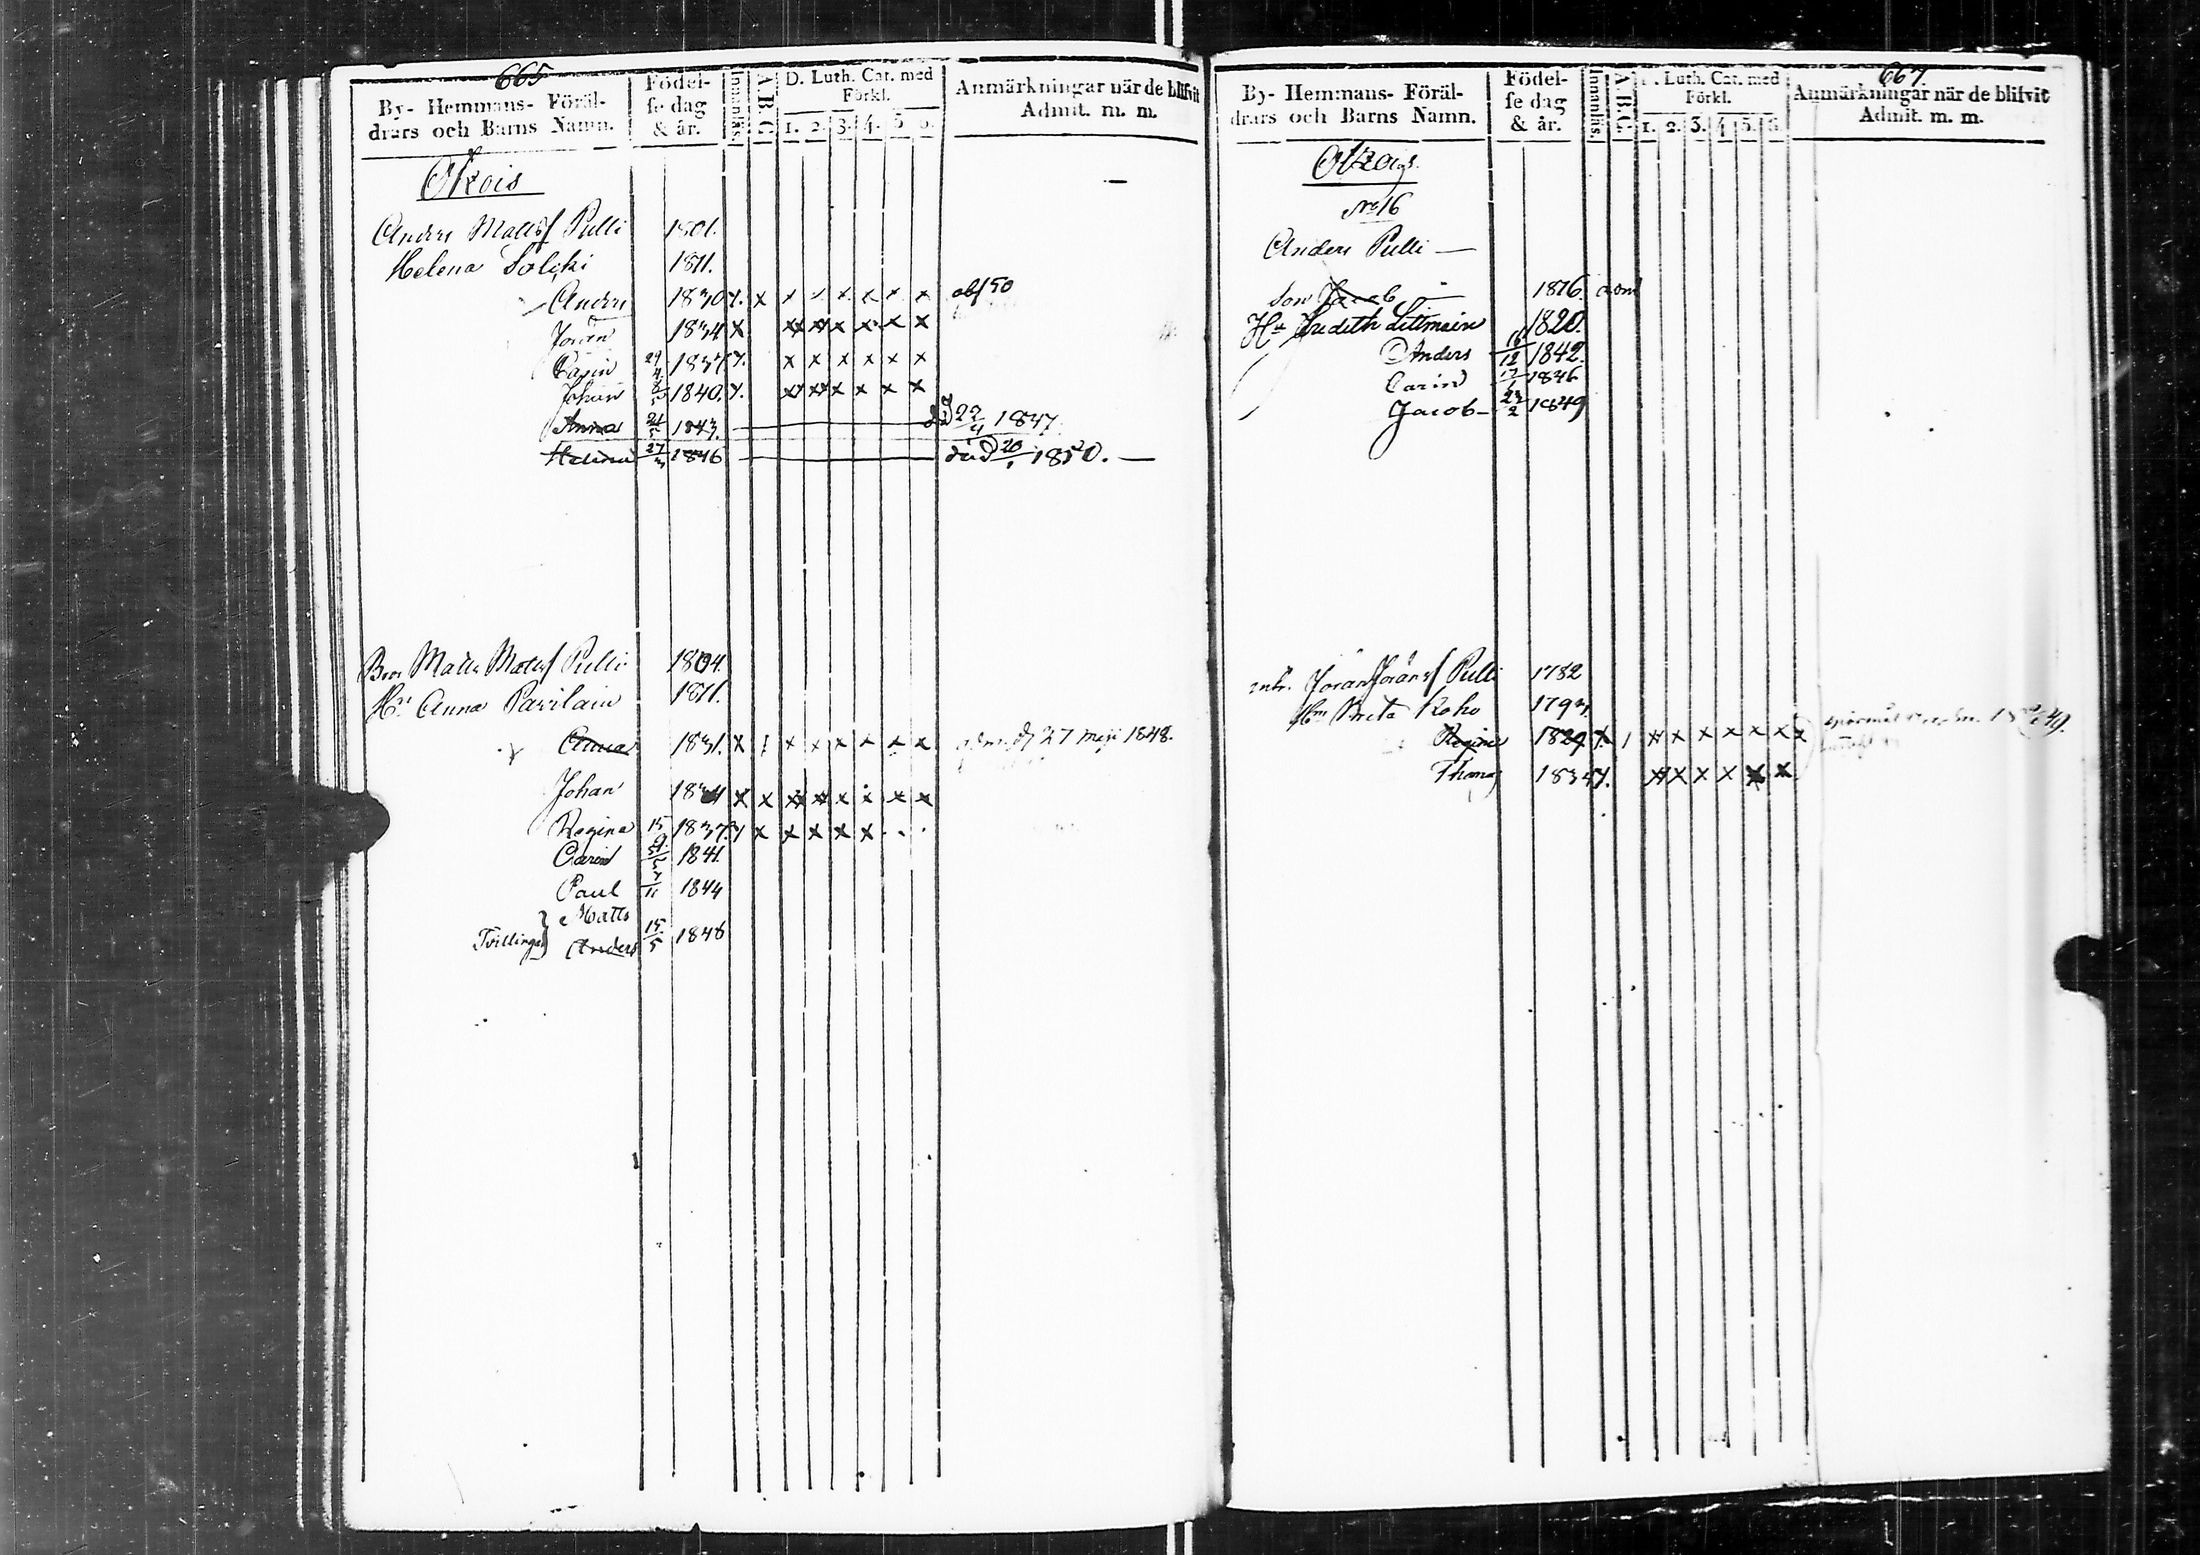 665
By- Hemmans- Föräl-
drars och Barns Namn.
Födel-
se dag
& år.
Innanläs.
A.B.C.
D. Luth. Cat. med
Förkl.
1. 2. 3. 4. 5. 6.
Anmärkningar när de blifvit
Admit. m. m.
Okois
Anders Mattsf Pulli 1801.
Helena 1811.
Anders 1830 x x x x x x x x abs 50
Jöran 1834 x x x x x x x
Carin 1837 x x x x x x x
Johan 1840. x x x x x x x
Anna 21/5 1843. död 22/4 1847
Helena 27/3 1846 död 20/1 1850.
Bror Matts Mattsf Pulli 1804
Hu Anna Parilain 1811.
Anna 1831. x x x x x x x 27 Maji 1848.
Johan x x x x x x x x
Regina 1837. x x x x x x
Carin 1841.
Paul 7/11 1844
Matts
Tvillingar Anders 15/5 1846
667
By- Hemmans- Föräl-
drars och Barns Namn.
Födel-
se dag
& år.
Innanläs.
A.B.C.
D. Luth. Cat. med
Förkl.
1. 2. 3. 4. 5. 6.
Anmärkningar när de blifvit
Admit. m. m.
No 16
Anders Pulli
Son Jacob 1816.
Hu Judith 1820.
Anders 16/12 1842.
Carin 17/1 1846
Jacob 23/2 1849
Inh. Jöran Jöransf Pulli 1782
Hu Brita Koho 1793.
Regina 1829 x x x x x x x
Thomas 1834 x x x x x x